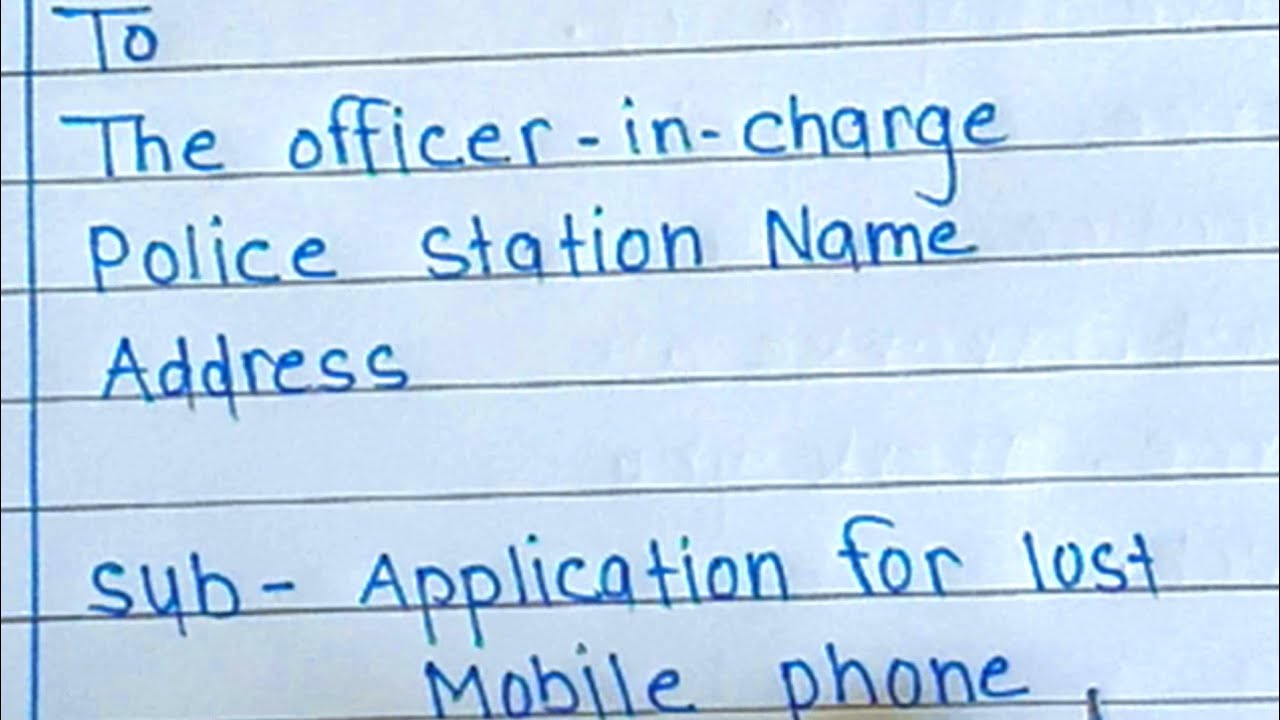 To
The officer-in-charge
Police Station Name
Address
Sub- Application for lost
Mobile phone